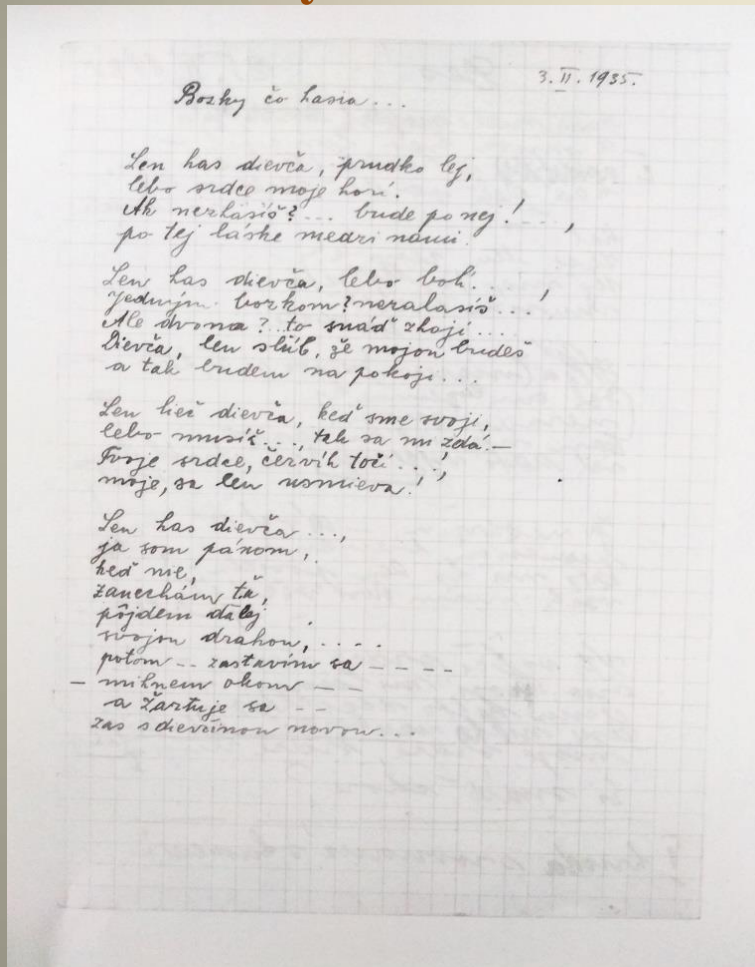 3. II. 1935.
Bozky čo hasia...
Len has dievča, prudko lej,
lebo srdce moje horí.
Ak nezhasíš?... bude po nej!...,
po tej láske medzi nami.
Len has dievča, lebo bolí....,
Jedným bozkom? nezahasíš...!
Ale dvoma? to snáď zhojí....
Dievča, len slúb, že mojou budeš
a tak budem na pokoji...
Len lieč dievča, keď sme svoji,
lebo musíš..., tak sa mi zdá.—
Tvoje srdce, červík točí...!,
moje, sa len usmieva!
Len has dievča...,
ja som pánom,
keď nie,
zanechám ťa,
pôjdem ďalej
svojou drahou,....
potom -- zastavím sa ----
- mihnem okom --
a žartuje sa --
zas s dievčinou novou...